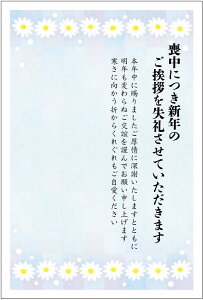 喪中につき新年の
ご挨拶を失礼させていただきます
本年中に賜りましたご厚情に深謝いたしますとともに
明年も変わらぬご交誼を謹んでお願い申し上げます
寒さに向かう折からくれぐれもご自愛ください